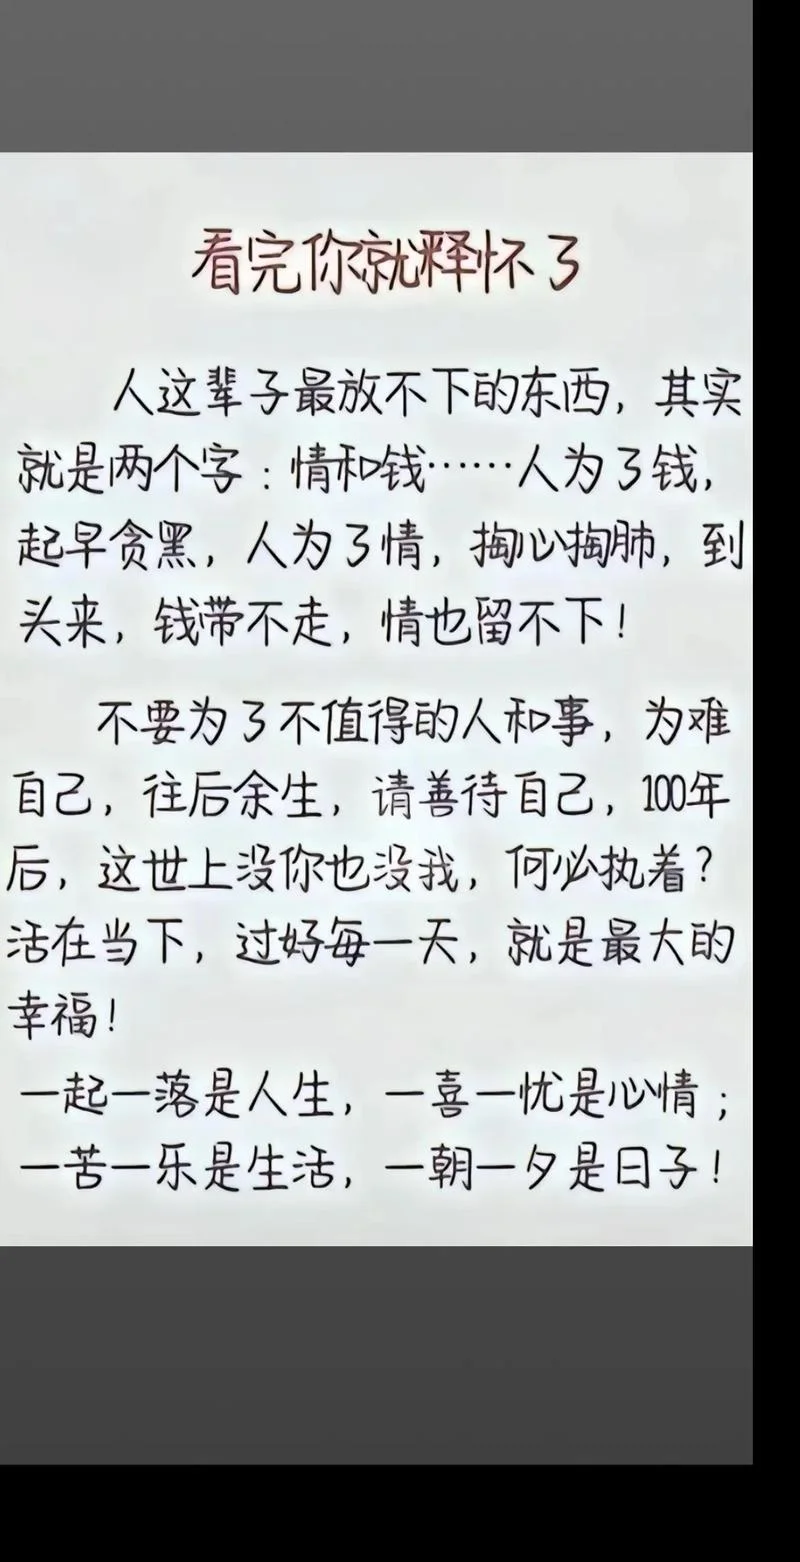 看完你就释怀了
人这辈子最放不下的东西，其实
就是两个字：情和钱……人为了钱，
起早贪黑，人为了情，掏心掏肺，到
头来，钱带不走，情也留不下！
不要为了不值得的人和事，为难
自己，往后余生，请善待自己，100年
后，这世上没你也没我，何必执着？
活在当下，过好每一天，就是最大的
幸福！
一起一落是人生，一喜一忧是心情；
一苦一乐是生活，一朝一夕是日子！